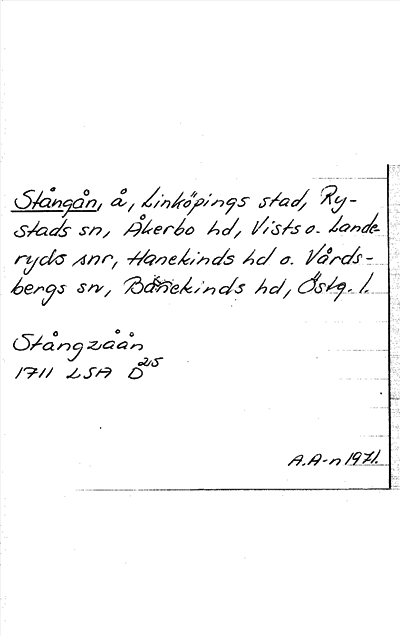 Stångån, å, Linköpings stad, Ry-
stads sn, Åkerbo hd, Vists o. Lande-
ryds snr, Hanekinds hd o. Vårds-
bergs sn, Bankekinds hd, Östg. l.
Stångzåån
1711 LSA D 215
A.A-n 1971.